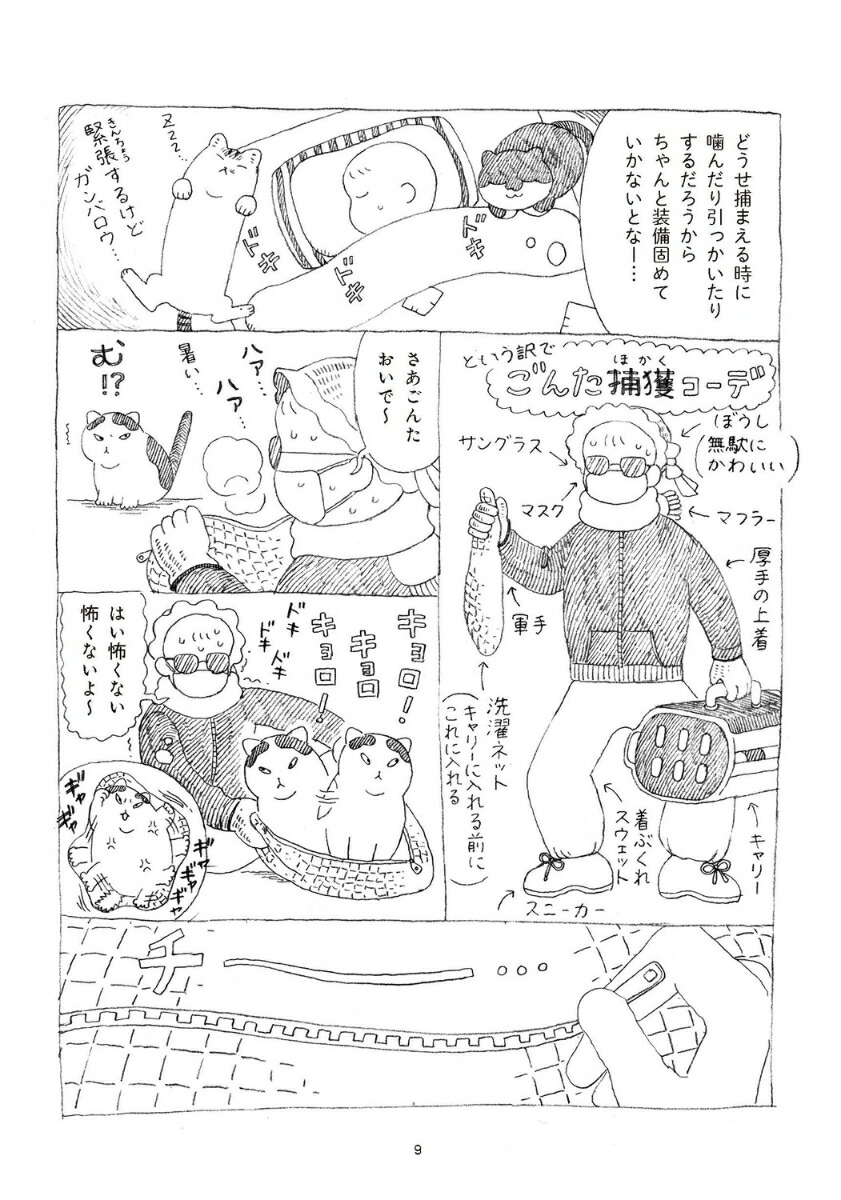 どうせ捕まえる時に
噛んだり引っかいたり
するだろうから
ちゃんと装備固めて
いかないとなー…
ドキ
ドキ
zzz…
きんちょう
緊張するけど
ガンバロウ…
という訳で
ほかく
ごんた捕獲コーデ
ぼうし
(無駄に
かわいい)
サングラス
マスク
マフラー
厚手の上着
軍手
洗濯ネット
(キャリーに入れる前に
これに入れる)
着ぶくれ
スウェット
キャリー
スニーカー
さあごんた
おいで〜
ハァ…
ハァ…
暑い…
む!?
キョロ!
キョロ
キョロ!
ドキ
ドキ
ドキ
はい怖くない
怖くないよ〜
ギャ
ギャ
ギャ
ギャ
ギャ
チー…
9